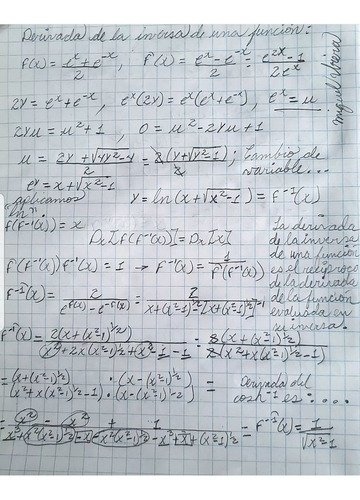 Derivada de la inversa de una función:
f(x) = (e^x + e^-x)/2 , f'(x) = (e^x - e^-x)/2 = (e^2x - 1)/(2e^x)
2y = e^x + e^-x , e^x(2y) = e^x(e^x + e^-x) , e^x = u
2yu = u² + 1 , 0 = u² - 2yu + 1
u = (2y + √(4y²-4))/2 = 2(y + √(y²-1))/2 ; Cambio de
variable...
e^y = x + √(x²-1)
aplicamos y = ln(x + √(x²-1)) = f^-1(x)
ln
f(f^-1(x)) = x
Dx[f(f^-1(x))] = Dx[x]
f'(f^-1(x)) f^-1'(x) = 1 → f^-1'(x) = 1/f'(f^-1(x))
La derivada
de la inversa
de una función
es el recíproco
de la derivada
de la función
evaluada en
su inversa.
f^-1'(x) = 2/(e^f(x) - e^-f(x)) = 2/(x + (x²-1)^½ - [x + (x²-1)^½]^-1)
f^-1'(x) = 2(x + (x²-1)^1/2)/(x² + 2x(x²-1)^½ + x² - 1 - 1) = 2(x + (x²-1)^½)/2(x² + x(x²-1)^½ - 1)
= (x + (x²-1)^½)/(x² + x(x²-1)^½ - 1) · (x - (x²-1)^½)/(x - (x²-1)^½) =
Derivada del
cosh^-1 es:...
f^-1'(x) = 1/√(x²-1)